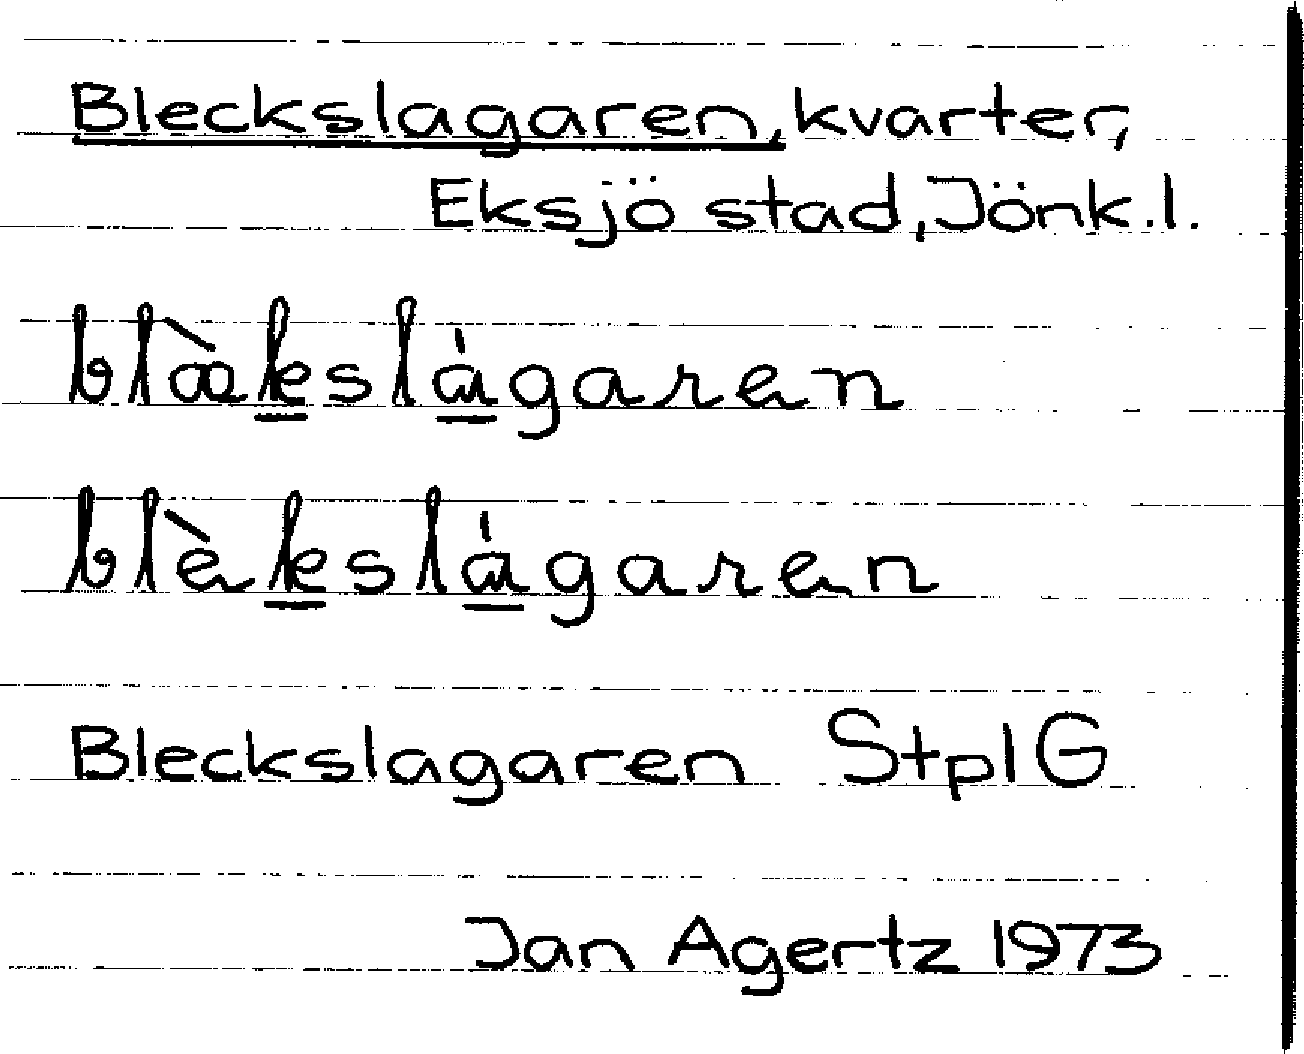 Bleckslagaren, kvarter,
Eksjö stad, Jönk.l.
blæ̀kslágaren
blèkslágaren
Bleckslagaren StplG
Jan Agertz 1973